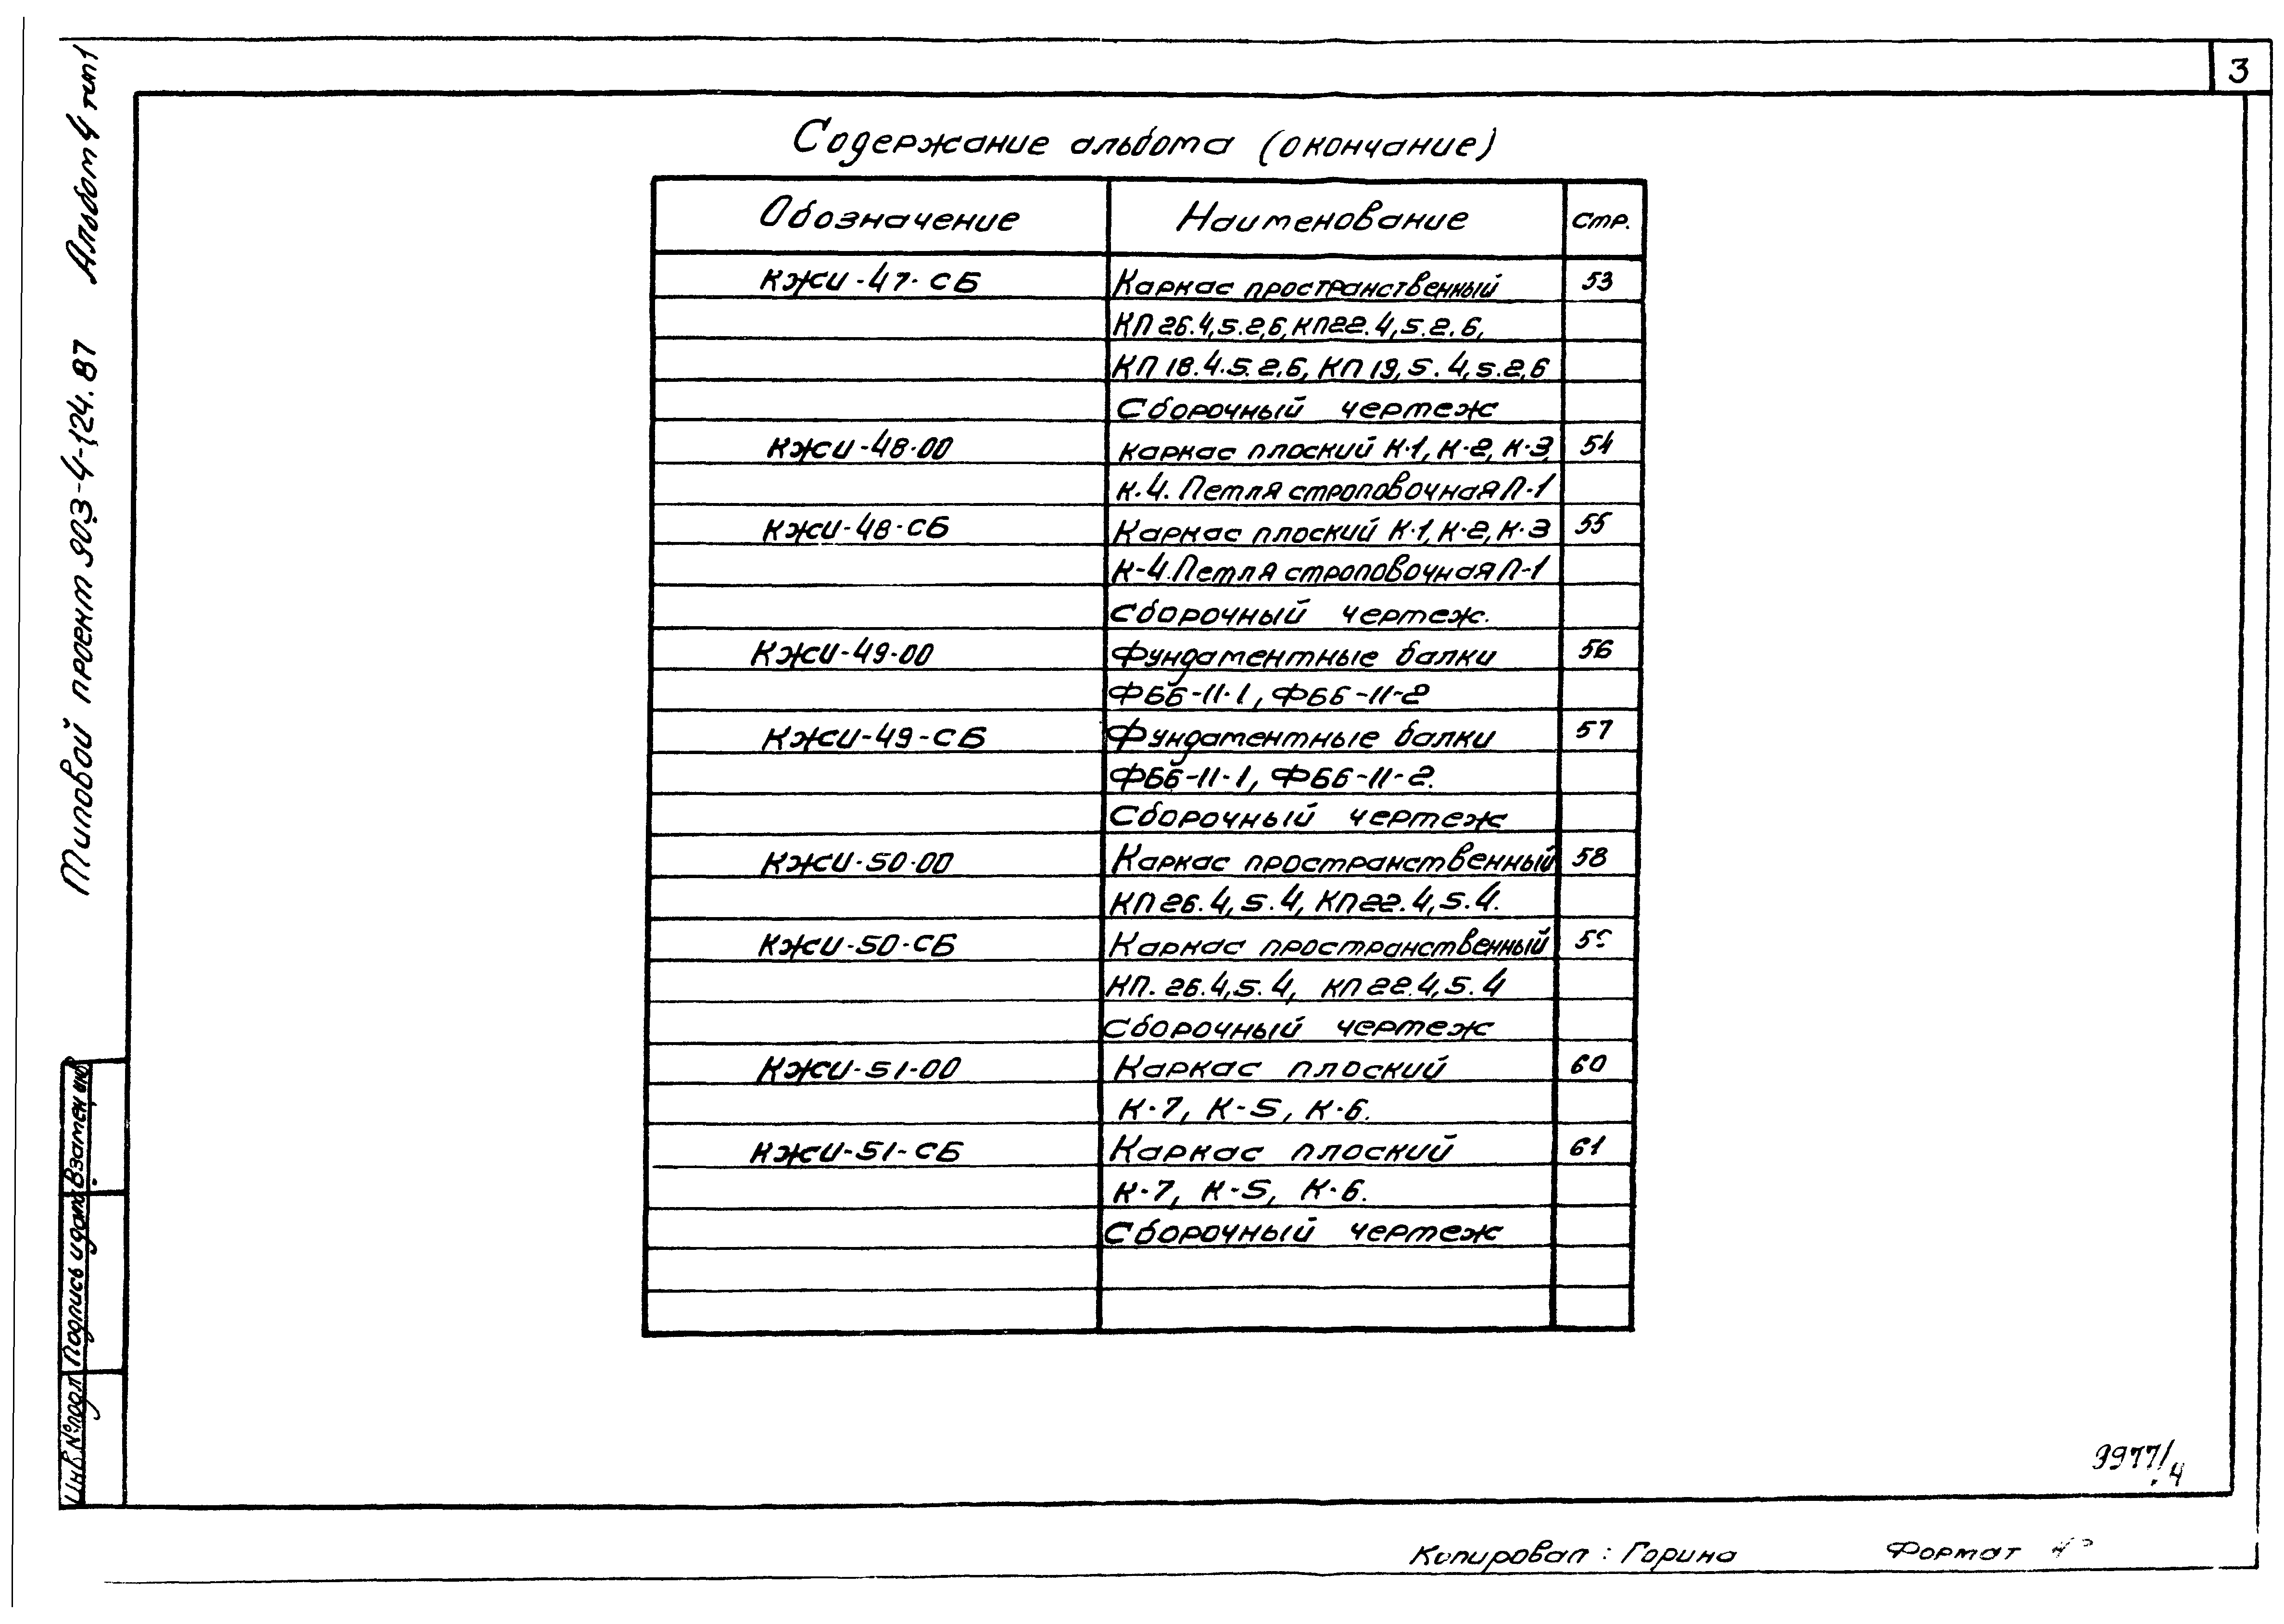 3
Содержание альбома (окончание)
Обозначение Наименование стр.
КЖИ-47-СБ Каркас пространственный 53
КП 26.4,5.2,6, КП22.4,5.2.6,
КП 18.4.5.2,6, КП 19,5.4,5.2,6
Сборочный чертеж
КЖИ-48-00 каркас плоский К-1, К-2, К-3, 54
К-4. Петля строповочная П-1
КЖИ-48-СБ Каркас плоский К-1, К-2, К-3 55
К-4. Петля строповочная П-1
Сборочный чертеж.
КЖИ-49-00 Фундаментные балки 56
ФБ6-11-1, ФБ6-11-2
КЖИ-49-СБ Фундаментные балки 57
ФБ6-11-1, ФБ6-11-2.
Сборочный чертеж
КЖИ-50-00 Каркас пространственный 58
КП26.4,5.4, КП22.4,5.4.
КЖИ-50-СБ Каркас пространственный 59
КП. 26.4,5.4, КП 22.4,5.4
Сборочный чертеж
КЖИ-51-00 Каркас плоский 60
К-7, К-5, К-6.
КЖИ-51-СБ Каркас плоский 61
К-7, К-5, К-6.
Сборочный чертеж
Типовой проект 903-4-124.87 Альбом 4 тип 1
Инв.№подл Подпись и дата Взамен инв
9977/4
Копировал: Горина Формат